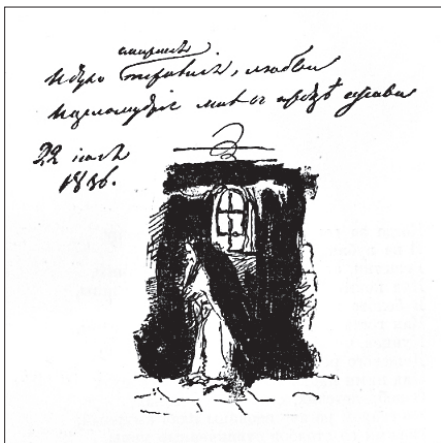 смиренія
И духъ терпѣнія, любви
И целомудрія мнѣ въ сердцѣ оживи
22 іюля
1836.